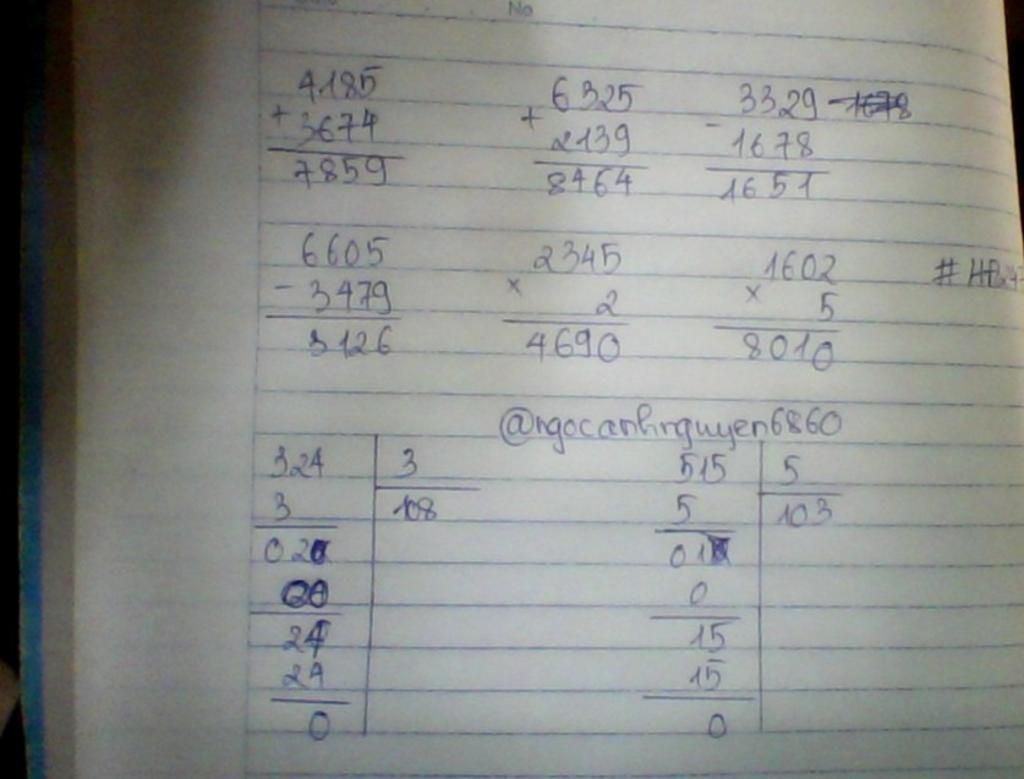 No
4185
+
3674
7859
6325
+
2139
8464
3329
-
1678
1651
6605
- 3479
3126
2345
×
2
4690
1602
×
5
8010
@ngocanhnguyen6860
324 3
3 108
02
24
24
0
515 5
5 103
01
0
15
15
0